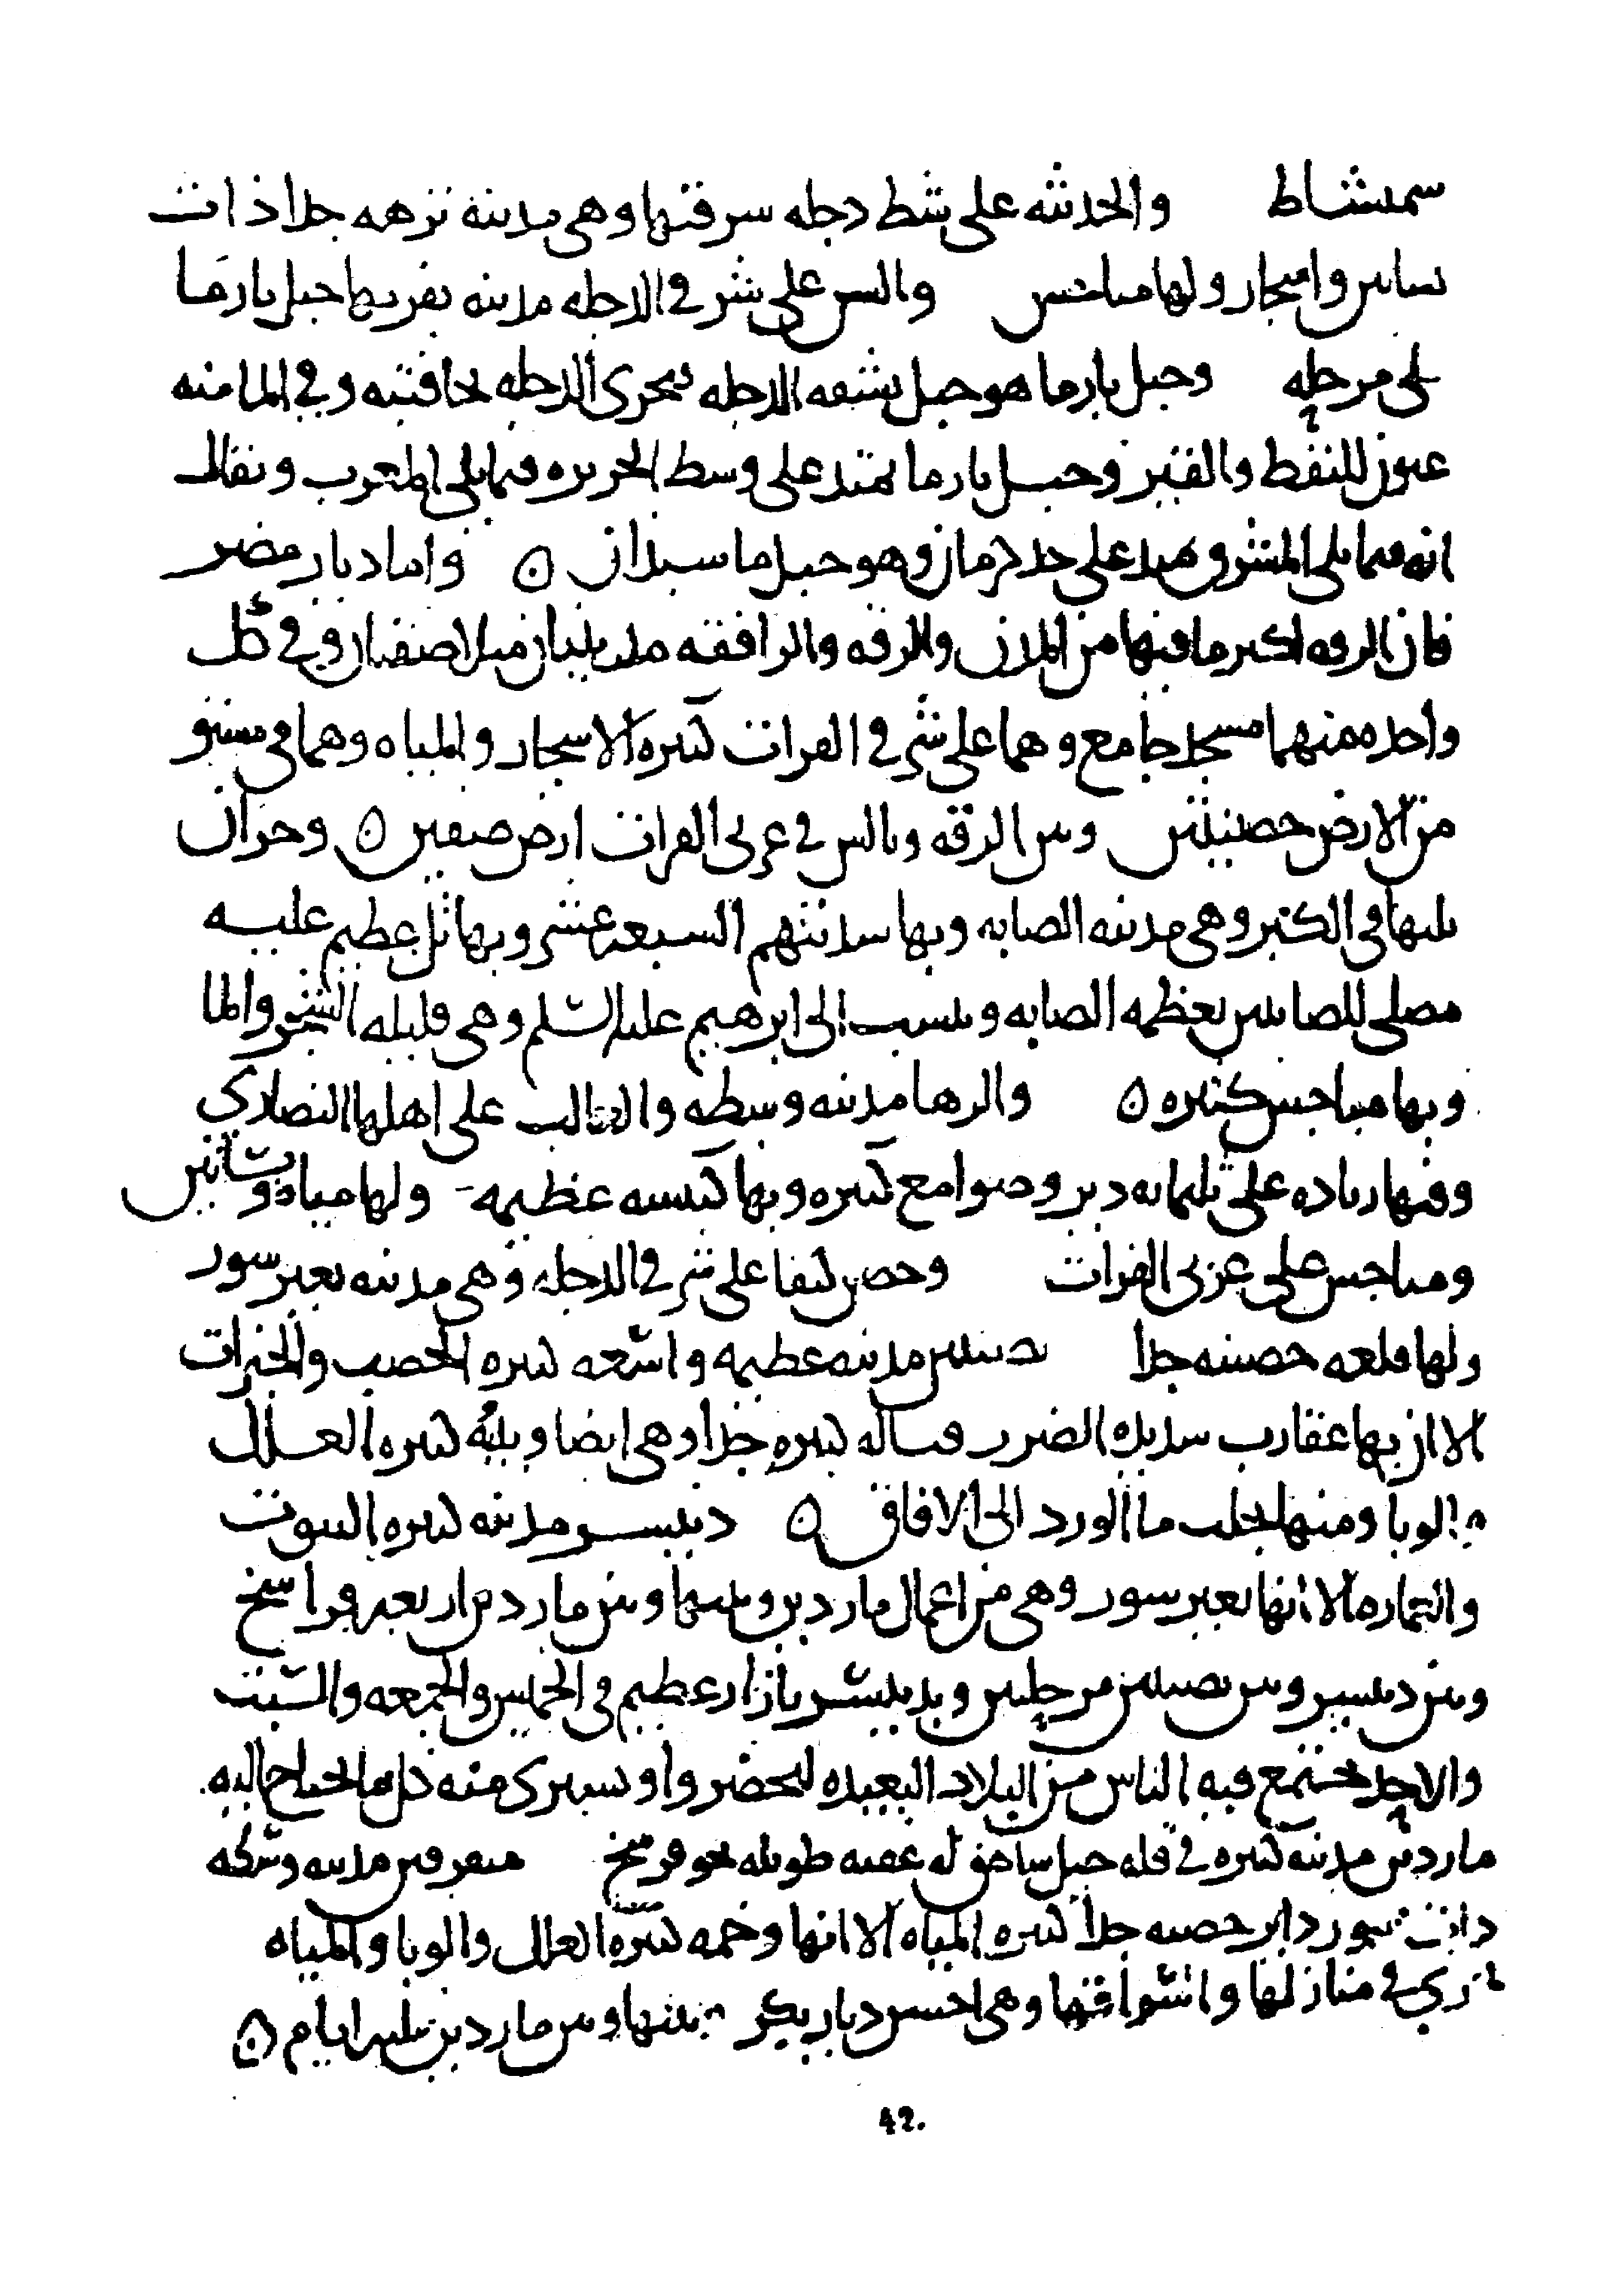 سمشاط والحدثه على شط دجله سرقيها وهي مدينه نزهه جدا ذات
بساتين واشجار ولها مباخس والسن على شرقي الدجله مدينه بقربها جبل بارما
على مرحله وجبل بارما هو جبل يشقه الدجله فيجري الدجله بحافتيه وفي الما منه
عيون للنفط والقير وجبل بارما يمتد على وسط الجزيره فيما يلي المغرب ويقال
انه فيما يلي المشرق يمتد على حد كرمان وهو جبل ماسبذان ه واما ديار مضر
فان الرقه اكبر ما فيها من المدن والرقه والرافقه مدينتان متلاصقتان وفي كل
واحده منهما مسجد جامع وهما على شرقي الفرات كثيره الاشجار والمياه وهما في مستو
من الارض خصيبتين وبين الرقه وبالس في غربي الفرات ارض صفين ه وحران
يليها في الكبر وهي مدينه الصابه وبها سدنتهم السبعه عشر وبها تل عظيم عليه
مصلى للصابين يعظمه الصابه وينسب الى ابرهيم عليه السلم وهي قليله الشجر والما
وبها مباخس كثيره ه والرها مدينه وسطه والغالب على اهلها النصاري
وفيها زياده على ثلثمايه دير وصوامع كثيره وبها كنيسه عظيمه ولها مياه وبساتين
ومباخس على غربي الفرات وحصن كيفا على شرقي الدجله وهي مدينه بغير سور
ولها قلعه حصينه جدا نصيبين مدينه عظيمه واسعه كثيره الخصب والخيرات
الا ان بها عقارب شديده الضرر قتاله كثيره جدا وهي ايضا وبيه كثيره العلل
والوبا ومنها يجلب ما الورد الى الافاق ه دنيسر مدينه كثيره البيوت
والتجاره الا انها بغير سور وهي من اعمال ماردين وبينها وبين ماردين اربعه فراسخ
وبين دنيسير وبين نصيبين مرحلتين وبدنيسر بازار عظيم في الخميس والجمعه والسبت
والاحد يجتمع فيه الناس من البلاد البعيده ليحضروا ويشتري منه كل ما يحتاج اليه
ماردين مدينه كبيره في قله جبل شاهق له عقبه طويله نحو فرسخ ميفرقين مدينه وسطه
ذات سور داير حصينه جدا كثيره المياه الا انها وخمه كثيره العلل والوبا والمياه
تجري في منازلها واسواقها وهي احسن ديار بكر بينها وبين ماردين ثلثه ايام ه
42.